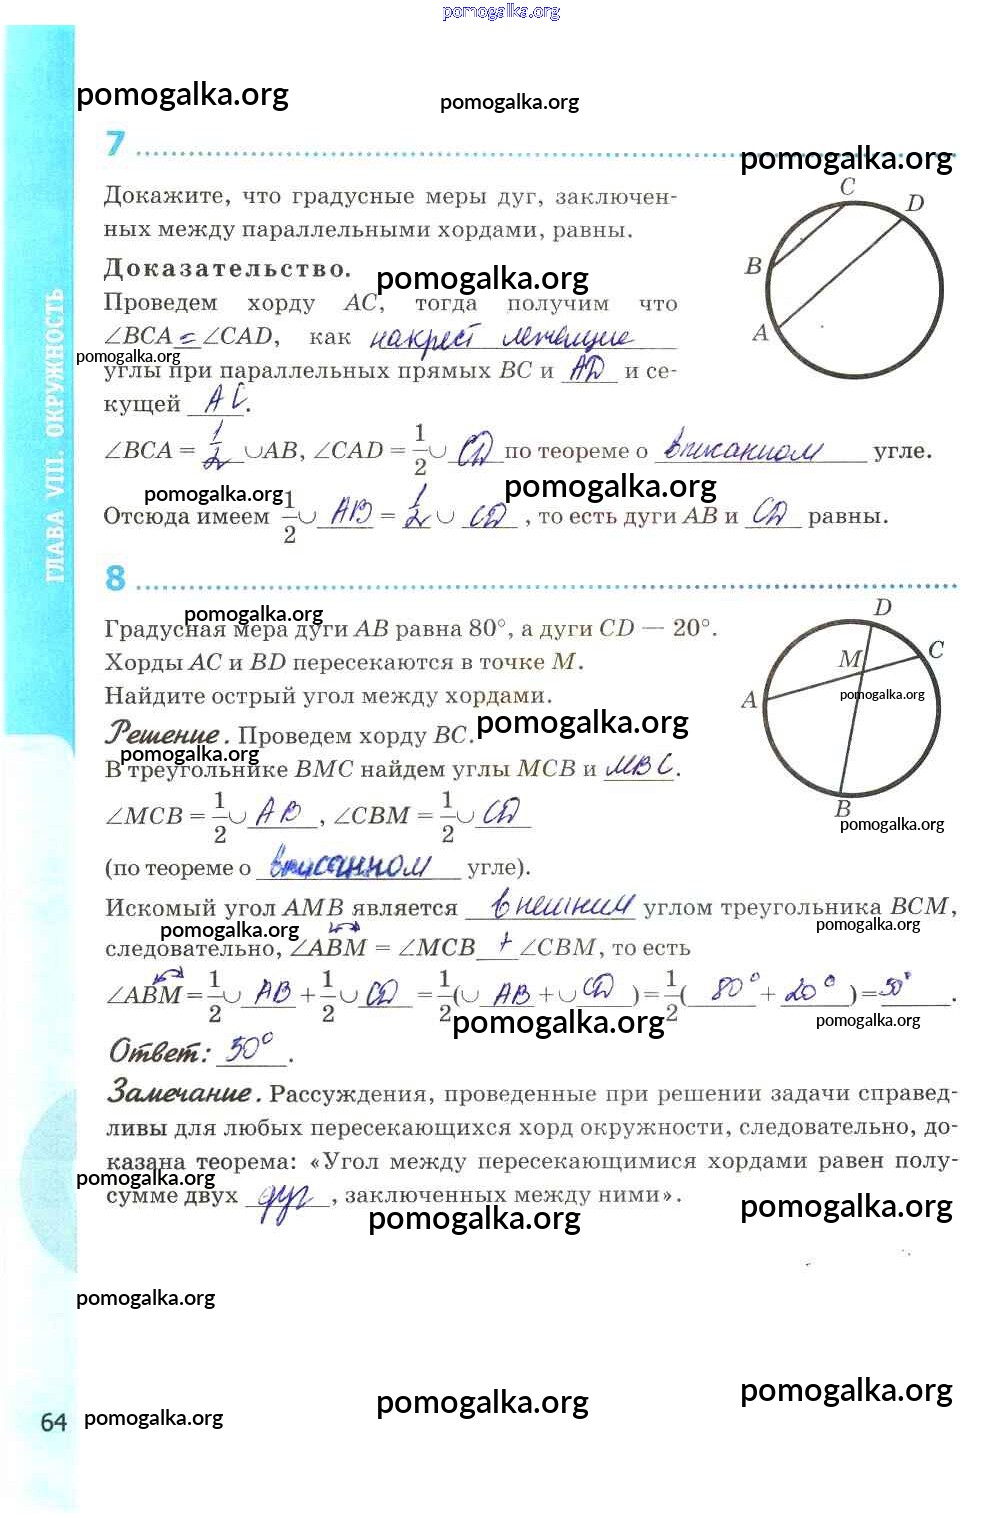 pomogalka.org
pomogalka.org
pomogalka.org
7
pomogalka.org
Докажите, что градусные меры дуг, заключен-
ных между параллельными хордами, равны.
C
D
B
A
Доказательство.
pomogalka.org
Проведем хорду AC, тогда получим что
∠BCA = ∠CAD, как накрест лежащие
pomogalka.org
углы при параллельных прямых BC и AD и се-
кущей AC.
∠BCA = 1/2 ∪AB, ∠CAD = 1/2 ∪ CD по теореме о вписанном угле.
pomogalka.org
pomogalka.org
Отсюда имеем 1/2 ∪ AB = 1/2 ∪ CD, то есть дуги AB и CD равны.
ГЛАВА VIII. ОКРУЖНОСТЬ
8
pomogalka.org
Градусная мера дуги AB равна 80°, а дуги CD — 20°.
Хорды AC и BD пересекаются в точке M.
Найдите острый угол между хордами.
D
C
M
A
B
pomogalka.org
pomogalka.org
Решение. Проведем хорду BC.
pomogalka.org
В треугольнике BMC найдем углы MCB и MBC.
∠MCB = 1/2 ∪ AB, ∠CBM = 1/2 ∪ CD
pomogalka.org
(по теореме о вписанном угле).
Искомый угол AMB является внешним углом треугольника BCM,
pomogalka.org
pomogalka.org
следовательно, ∠ABM = ∠MCB + ∠CBM, то есть
∠ABM = 1/2 ∪ AB + 1/2 ∪ CD = 1/2 (∪ AB + ∪ CD) = 1/2 ( 80° + 20° ) = 50°.
pomogalka.org
pomogalka.org
Ответ: 50°.
Замечание. Рассуждения, проведенные при решении задачи справед-
ливы для любых пересекающихся хорд окружности, следовательно, до-
казана теорема: «Угол между пересекающимися хордами равен полу-
pomogalka.org
сумме двух дуг, заключенных между ними».
pomogalka.org
pomogalka.org
pomogalka.org
64
pomogalka.org
pomogalka.org
pomogalka.org